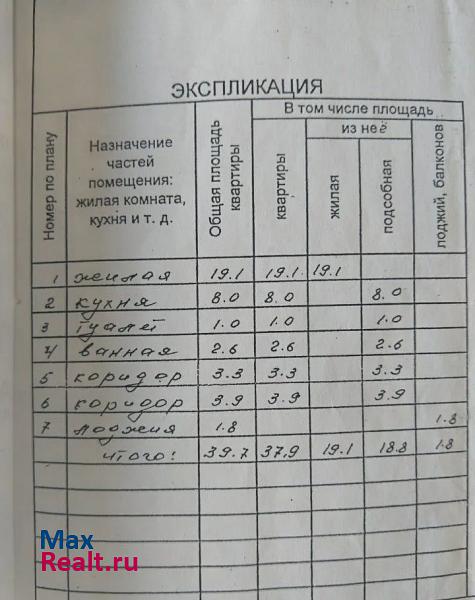 ЭКСПЛИКАЦИЯ
Номер по плану
Назначение
частей
помещения:
жилая комната,
кухня и т. д.
Общая площадь
квартиры
В том числе площадь
квартиры
из неё
жилая
подсобная
лоджий, балконов
1 жилая 19.1 19.1 19.1
2 кухня 8.0 8.0 8.0
3 туалет 1.0 1.0 1.0
4 ванная 2.6 2.6 2.6
5 коридор 3.3 3.3 3.3
6 коридор 3.9 3.9 3.9
7 лоджия 1.8 1.8
итого: 39.7 37,9 19.1 18.8 1.8
Max
Realt.ru